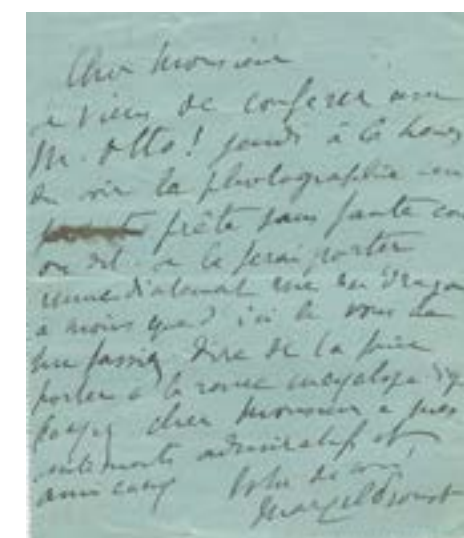 Cher Monsieur
Je viens de conférer avec
M. Otto ! jeudi à 6 heures
du soir la photographie sera
prête sans faute comme
on dit. Je la ferai porter
immédiatement rue du Dragon
à moins que d'ici là vous ne
me fassiez dire de la faire
porter à la revue encyclopédique
cher Monsieur à mes
sentiments admiratifs et
amicaux Votre dévoué
Marcel Proust